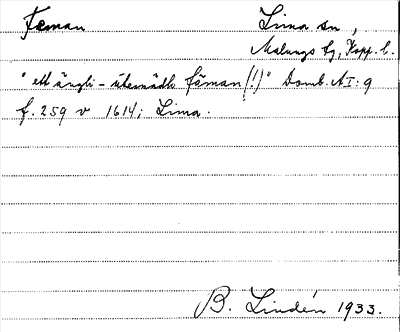 Fæman Lima sn,
Malungs tg, Kopp. l.
"ett ängli- utermädh fäman (!)" Domb. AI: 9
f. 259 v 1614; Lima.
B. Lindén 1933.